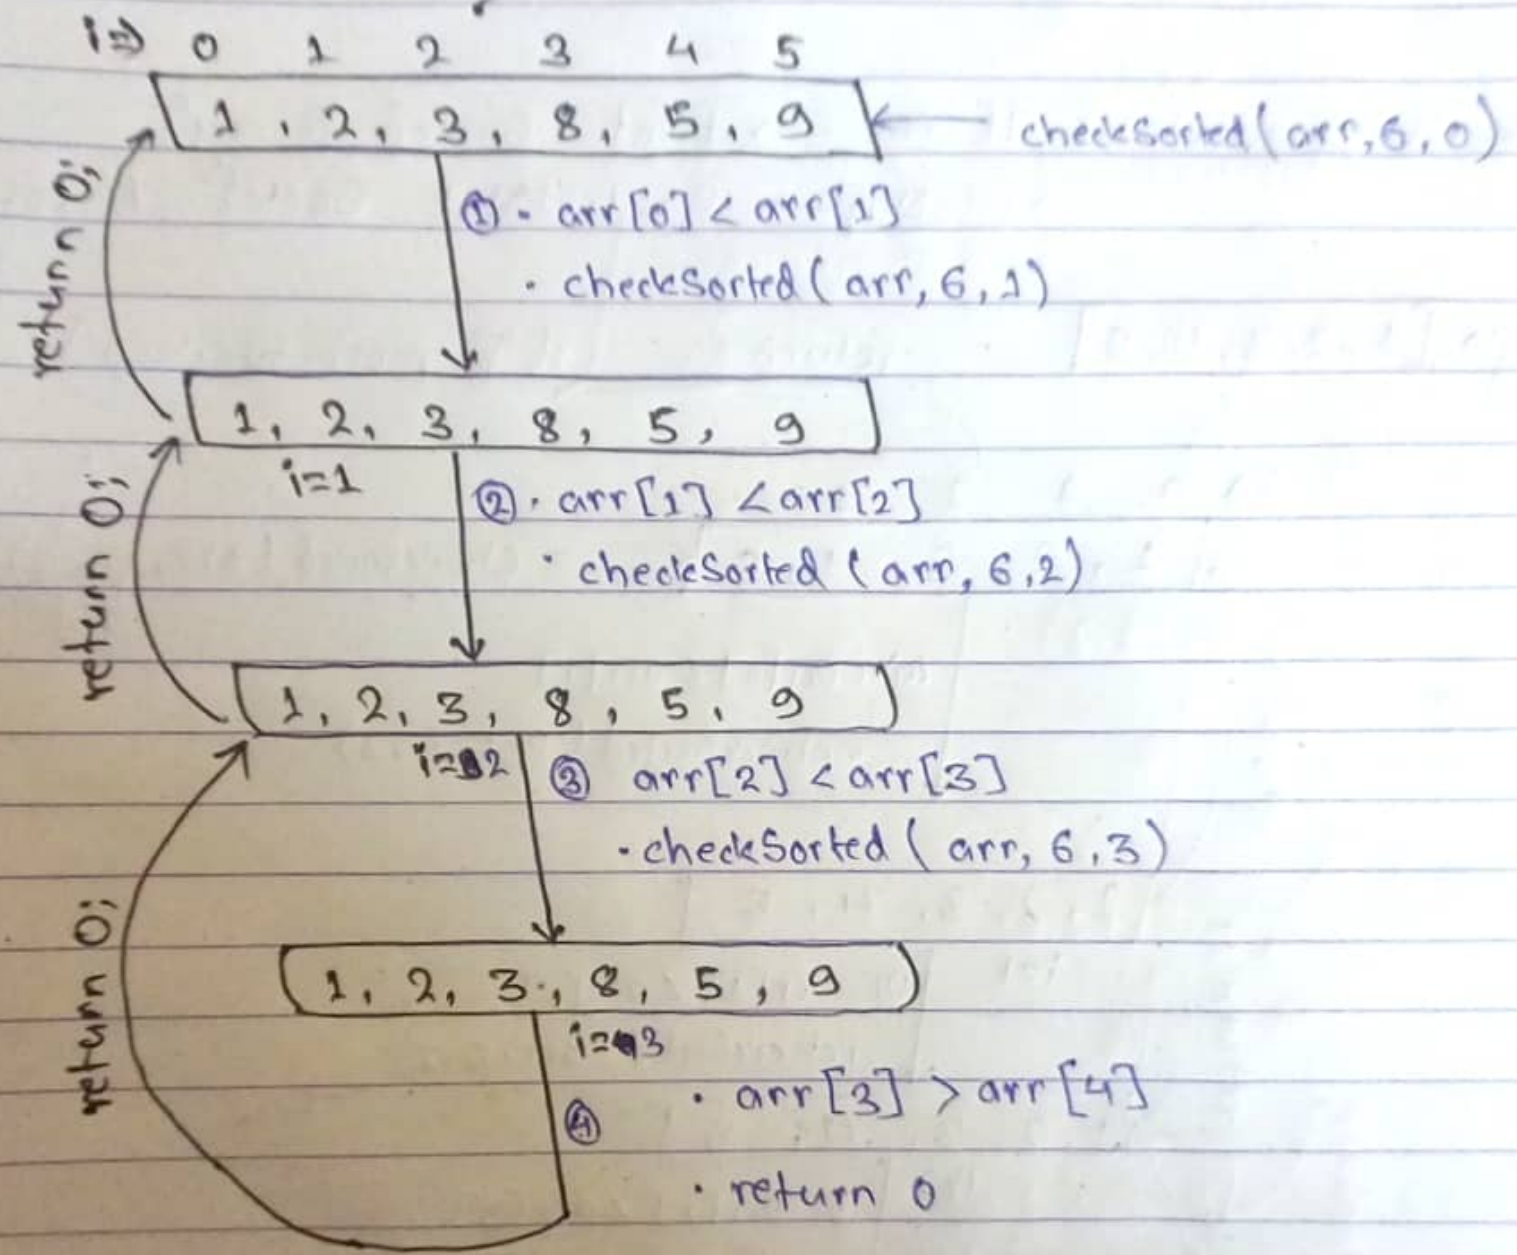 i⇒ 0 1 2 3 4 5
1, 2, 3, 8, 5, 9
checkSorted(arr,6,0)
① · arr[0] < arr[1]
· checkSorted(arr, 6, 1)
return 0;
1, 2, 3, 8, 5, 9
i=1
② · arr[1] < arr[2]
· checkSorted(arr, 6,2)
return 0;
1, 2, 3, 8, 5, 9
i=2
③ arr[2] < arr[3]
· checkSorted(arr, 6,3)
return 0;
1, 2, 3, 8, 5, 9
i=3
④ · arr[3] > arr[4]
· return 0